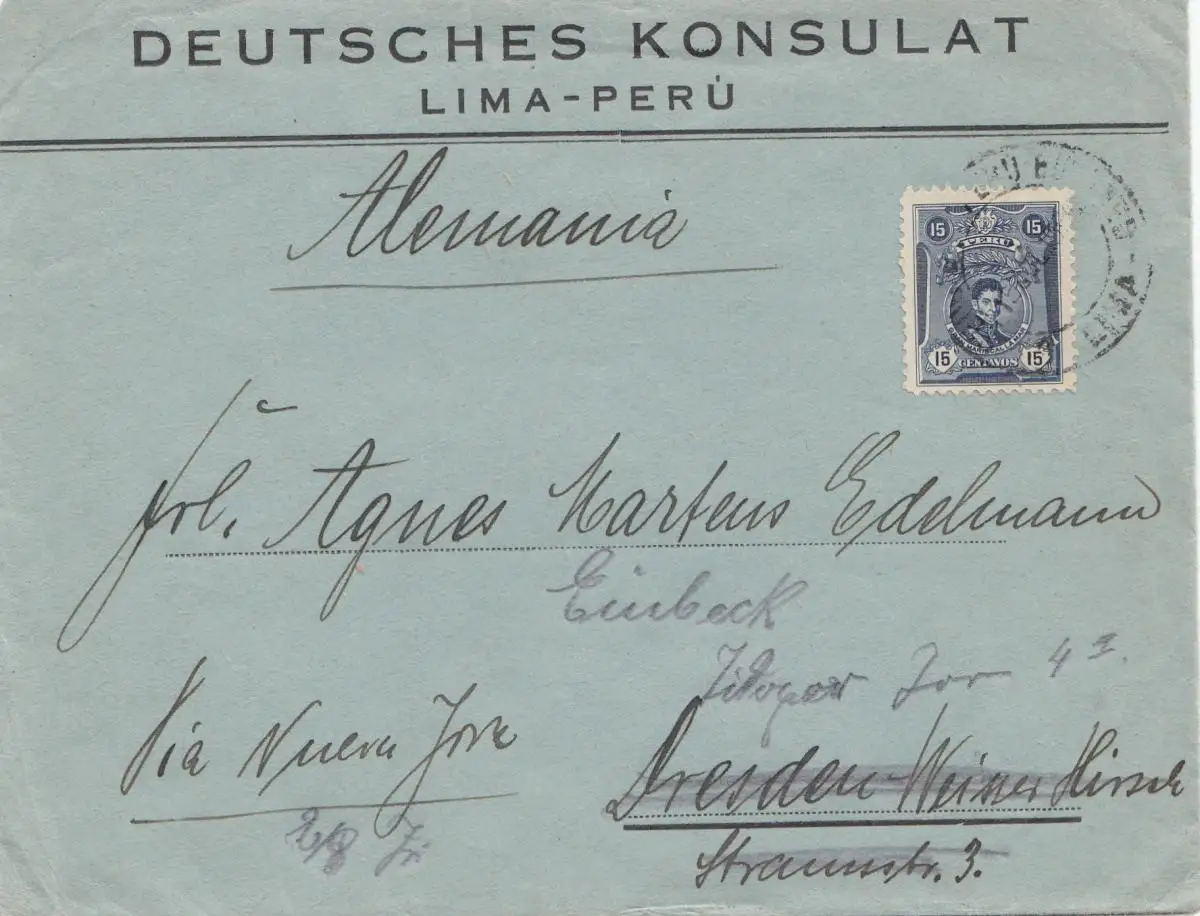 DEUTSCHES KONSULAT
LIMA-PERÚ
Alemania
15 15
PERU
15 CENTAVOS 15
LIMA
Frl. Agnes Martens Edelmann
Einbeck
Tor 4
Via Nueva York
Dresden-Weisser Hirsch
Straussstr. 3.